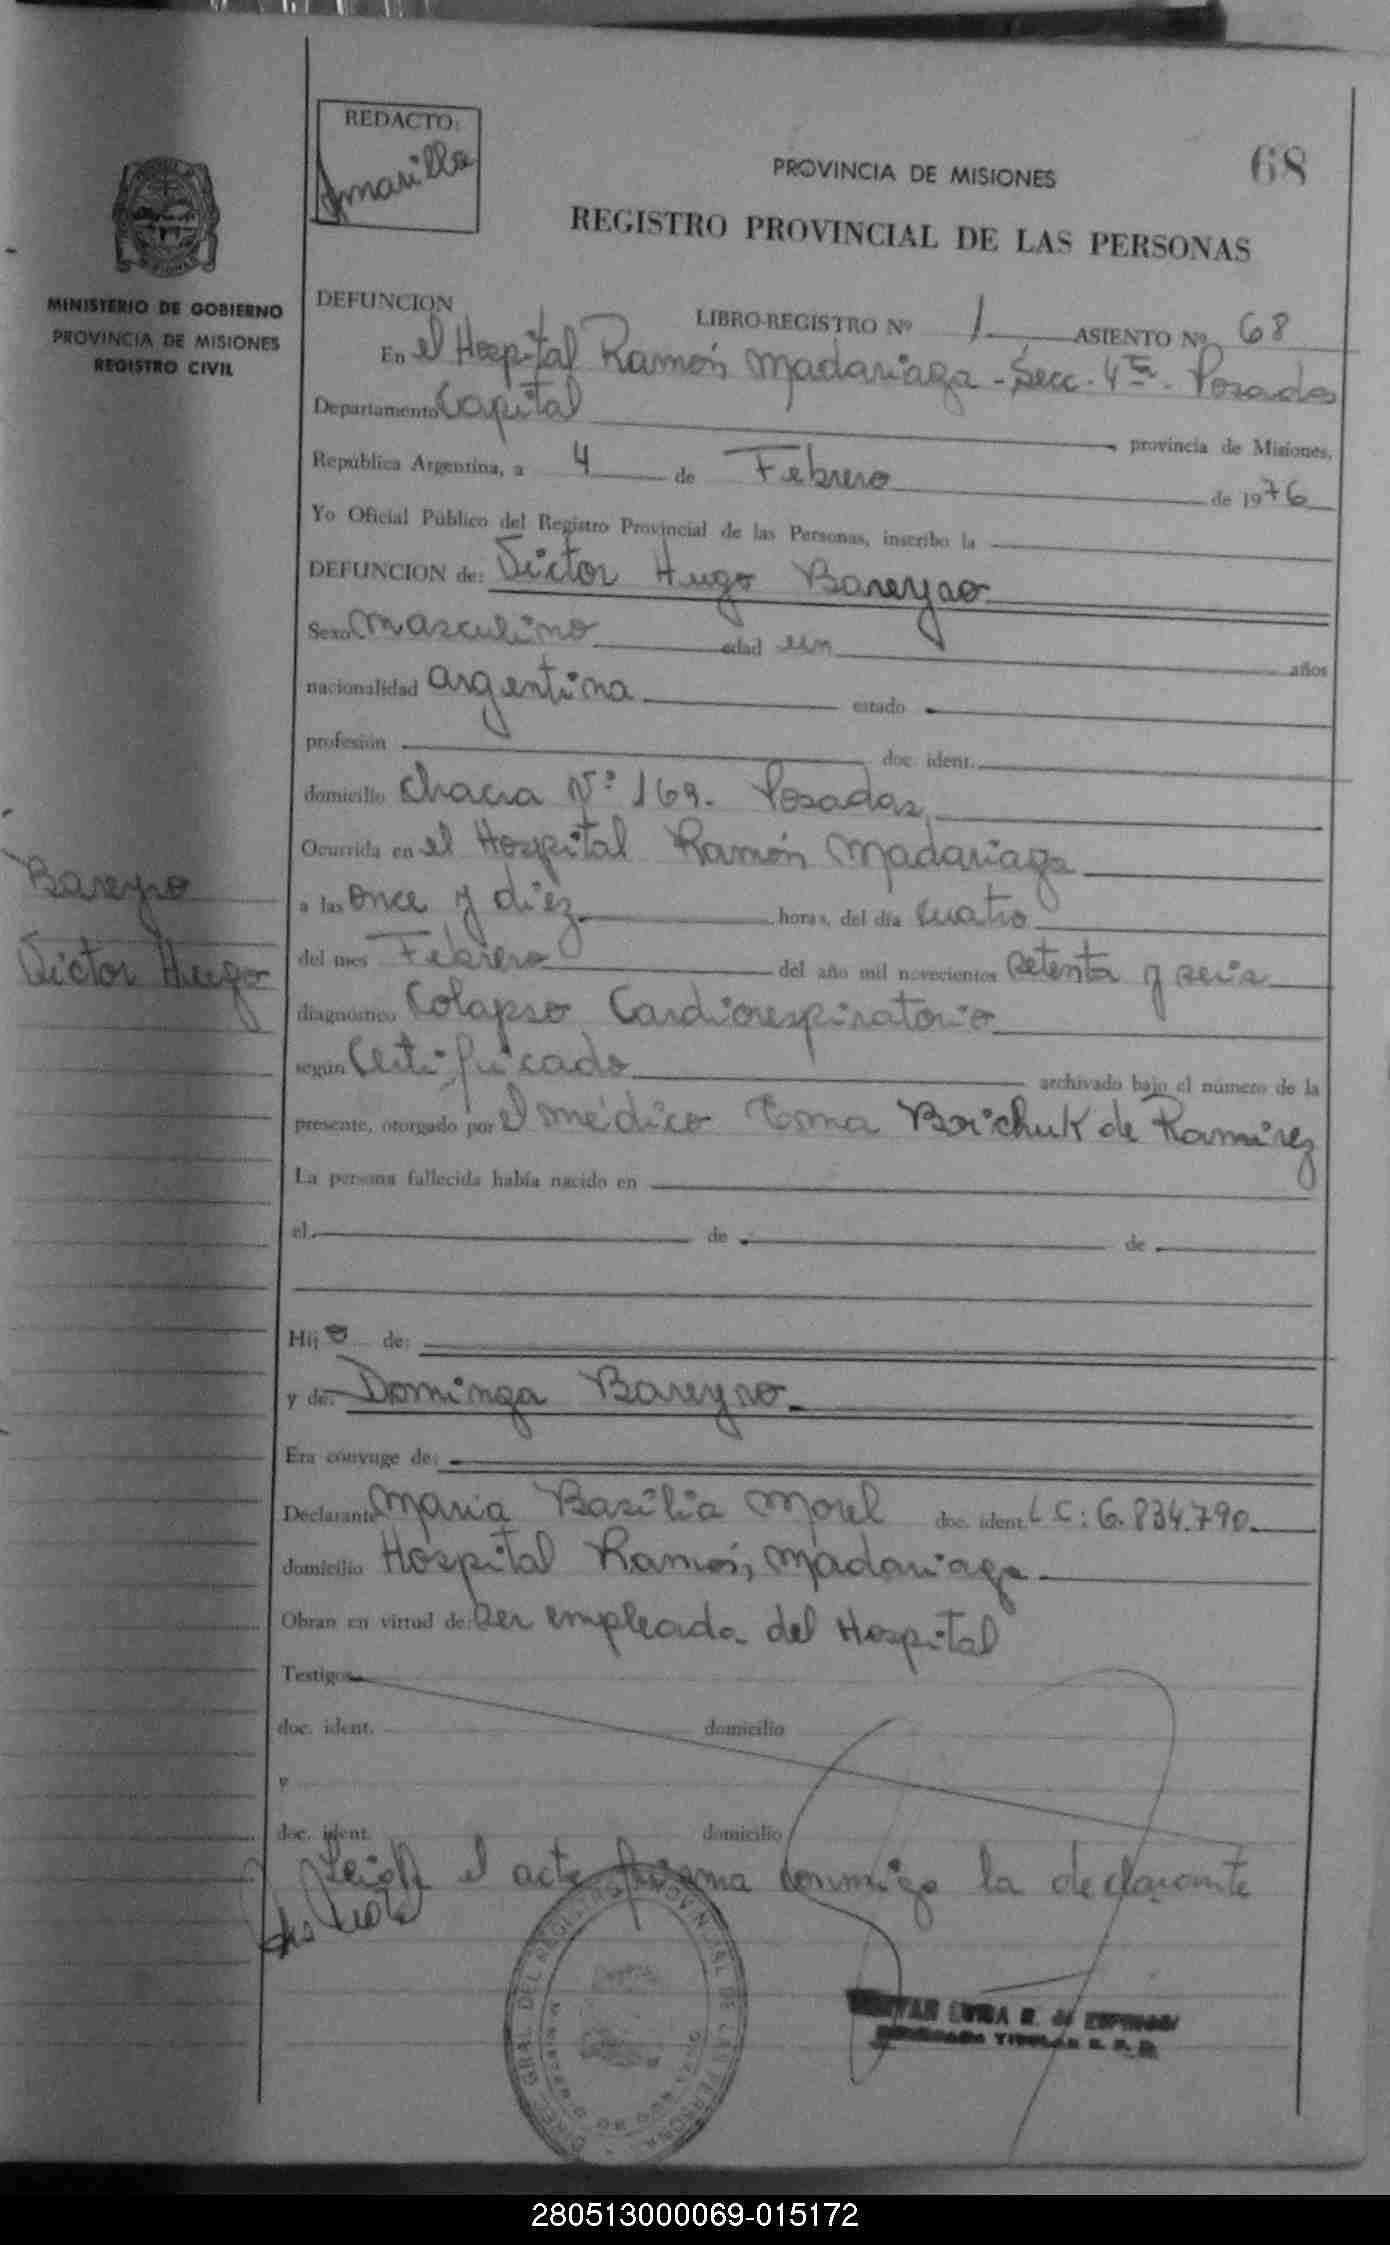 REDACTO:
Amarilla
68
PROVINCIA DE MISIONES
REGISTRO PROVINCIAL DE LAS PERSONAS
MINISTERIO DE GOBIERNO
PROVINCIA DE MISIONES
REGISTRO CIVIL
DEFUNCION
LIBRO-REGISTRO Nº 1 ASIENTO Nº 68
En el Hospital Ramón Madariaga - Secc. 4ta. Posadas
Departamento Capital provincia de Misiones,
República Argentina, a 4 de Febrero de 1976
Yo Oficial Público del Registro Provincial de las Personas, inscribo la
DEFUNCION de: Victor Hugo Bareyro
Sexo Masculino edad un años
nacionalidad argentina estado
profesión doc. ident.
domicilio chacra Nº: 169. Posadas
Ocurrida en el Hospital Ramón Madariaga
a las once y diez horas, del día cuatro
del mes Febrero del año mil novecientos setenta y seis
diagnóstico Colapso Cardiorespiratorio
según Certificado archivado bajo el número de la
presente, otorgado por el médico Ema Brichuk de Ramirez
Bareyro
Victor Hugo
La persona fallecida había nacido en
el de de
Hij o de:
y de: Dominga Bareyro
Era cónyuge de:
Declarante Maria Basilia Morel doc. ident. L C: 6.834.790
domicilio Hospital Ramón, Madariaga
Obran en virtud de: ser empleada del Hospital
Testigos
doc. ident. domicilio
y
doc. ident. domicilio
Leida el acta firma conmigo la declarante
DIREC. GRAL. DEL REGISTRO PROVINCIAL DE LAS PERSONAS
280513000069-015172